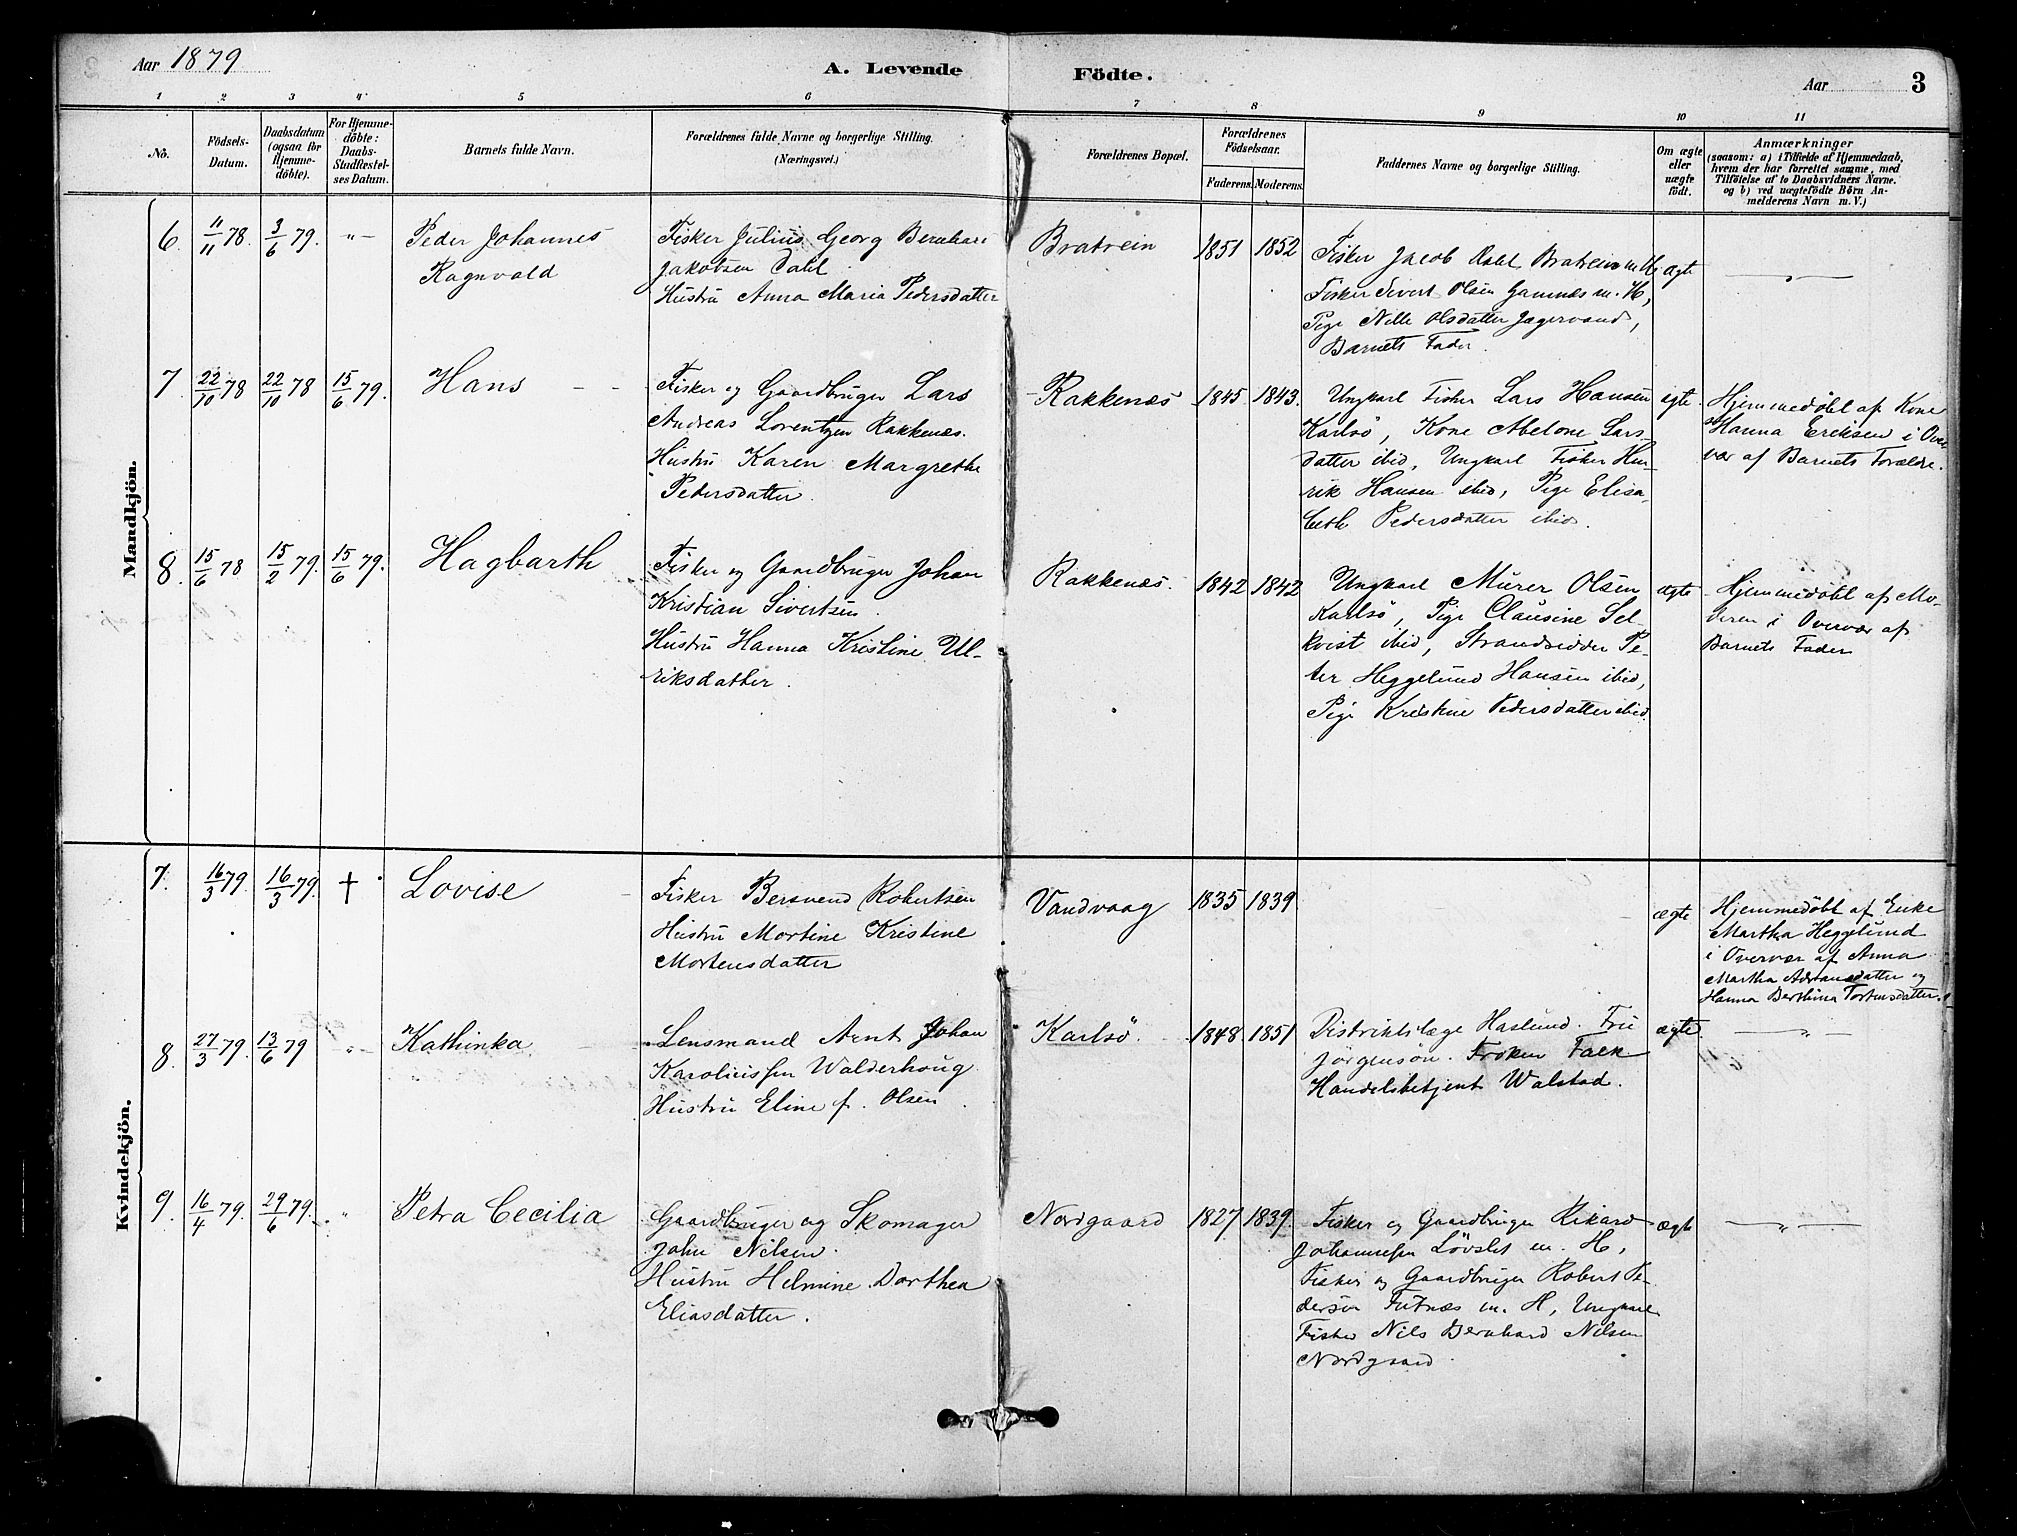 Aar 1879
A. Levende Födte.
Aar 3
1 2 3 4 5 6 7 8 9 10 11
No.
Födsels-
Datum.
Daabsdatum
(ogsaa for
Hjemme-
döbte).
For Hjemme-
döbte:
Daabs-
Stadfæstel-
ses Datum.
Barnets fulde Navn.
Forældrenes fulde Navne og borgerlige Stilling.
(Næringsvei.)
Forældrenes Bopæl.
Forældrenes
Födselsaar.
Faderens. Moderens.
Faddernes Navne og borgerlige Stilling.
Om ægte
eller
uægte
födt.
Anmærkninger
(saasom: a) i Tilfælde af Hjemmedaab,
hvem der har forrettet samme, med
Tilföielse af to Daabsvidners Navne.
og b) ved uægtefödte Börn An-
melderens Navn m. V.)
Mandkjön.
6. 11/11 78. 3/6 79. -„-
Peder Johannes
Ragnvald
Fisker Julius Georg Bernhard
Jakobsen Dahl.
Hustru Anna Maria Pedersdatter
Bratrein
1851 1852
Fisker Jacob Dahl Bratrein m. H,
Fisker Sivert Olsen Gamnæs m. H,
Pige Nille Olsdatter Jægervand,
Barnets Fader.
ægte
— „ —
7 22/10 78 22/10 78 15/6 79.
Hans - -
Fisker og Gaardbruger Lars
Andreas Lorentzen Rakkenæs.
Hustru Karen Margrethe
Pedersdatter.
Rakkenæs
1845 1843.
Ungkarl Fisker Lars Hansen
Karlsö, Kone Abelone Lars-
datter ibid, Ungkarl Fisker Hen-
rik Hansen ibid, Pige Elisa-
beth Pedersdatter ibid.
ægte.
Hjemmedöbt af Kone
Hanna Eriksen i Over-
vær af Barnets Forældre.
8. 15/6 78 15/2 79. 15/6 79.
Hagbarth
Fisker og Gaardbruger Johan
Kristian Sivertsen.
Hustru Hanna Kristine Ul-
riksdatter.
Rakkenæs.
1842 1842
Ungkarl Murer Olsen
Karlsö, Pige Clausine Sel-
kvist ibid, Strandsidder Pe-
ter Heggelund Hansen ibid,
Pige Kristine Pedersdatter ibid.
ægte
Hjemmedöbt af Mo-
deren i Overvær af
Barnets Fader
Kvindekjön.
7. 16/3 79. 16/3 79. †
Lovise
Fisker Bersvend Robertsen
Hustru Mortine Kristine
Mortensdatter
Vandvaag
1835 1839
ægte
Hjemmedöbt af Enke
Martha Heggelund
i Overvær af Anna
Martha Adriansdatter og
Hanna Berthina Torbensdatter.
8. 27/3 79. 13/6 79 -„-
Kathinka
Lensmand Arnt Johan
Karoliussen Walderhoug
Hustru Eline f. Olsen.
Karlsö.
1848 1851
Distriktslæge Haslund. Fru
Jörgensön. Fröken Falck
Handelsbetjent Walstad.
ægte.
— „ —
9. 16/4 79. 29/6 79. „
Petra Cecilia
Gaardbruger og Skomager
John Nilsen.
Hustru Helmine Dorthea
Eliasdatter.
Nordgaard
1827 1839.
Fisker og Gaardbruger Rikard
Johannesen Lövslet m. H,
Fisker og Gaardbruger Robert Pe-
dersen Futnæs m. H, Ungkarl
Fisker Nils Bernhard Nilsen
Nordgaard.
ægte
— „ —